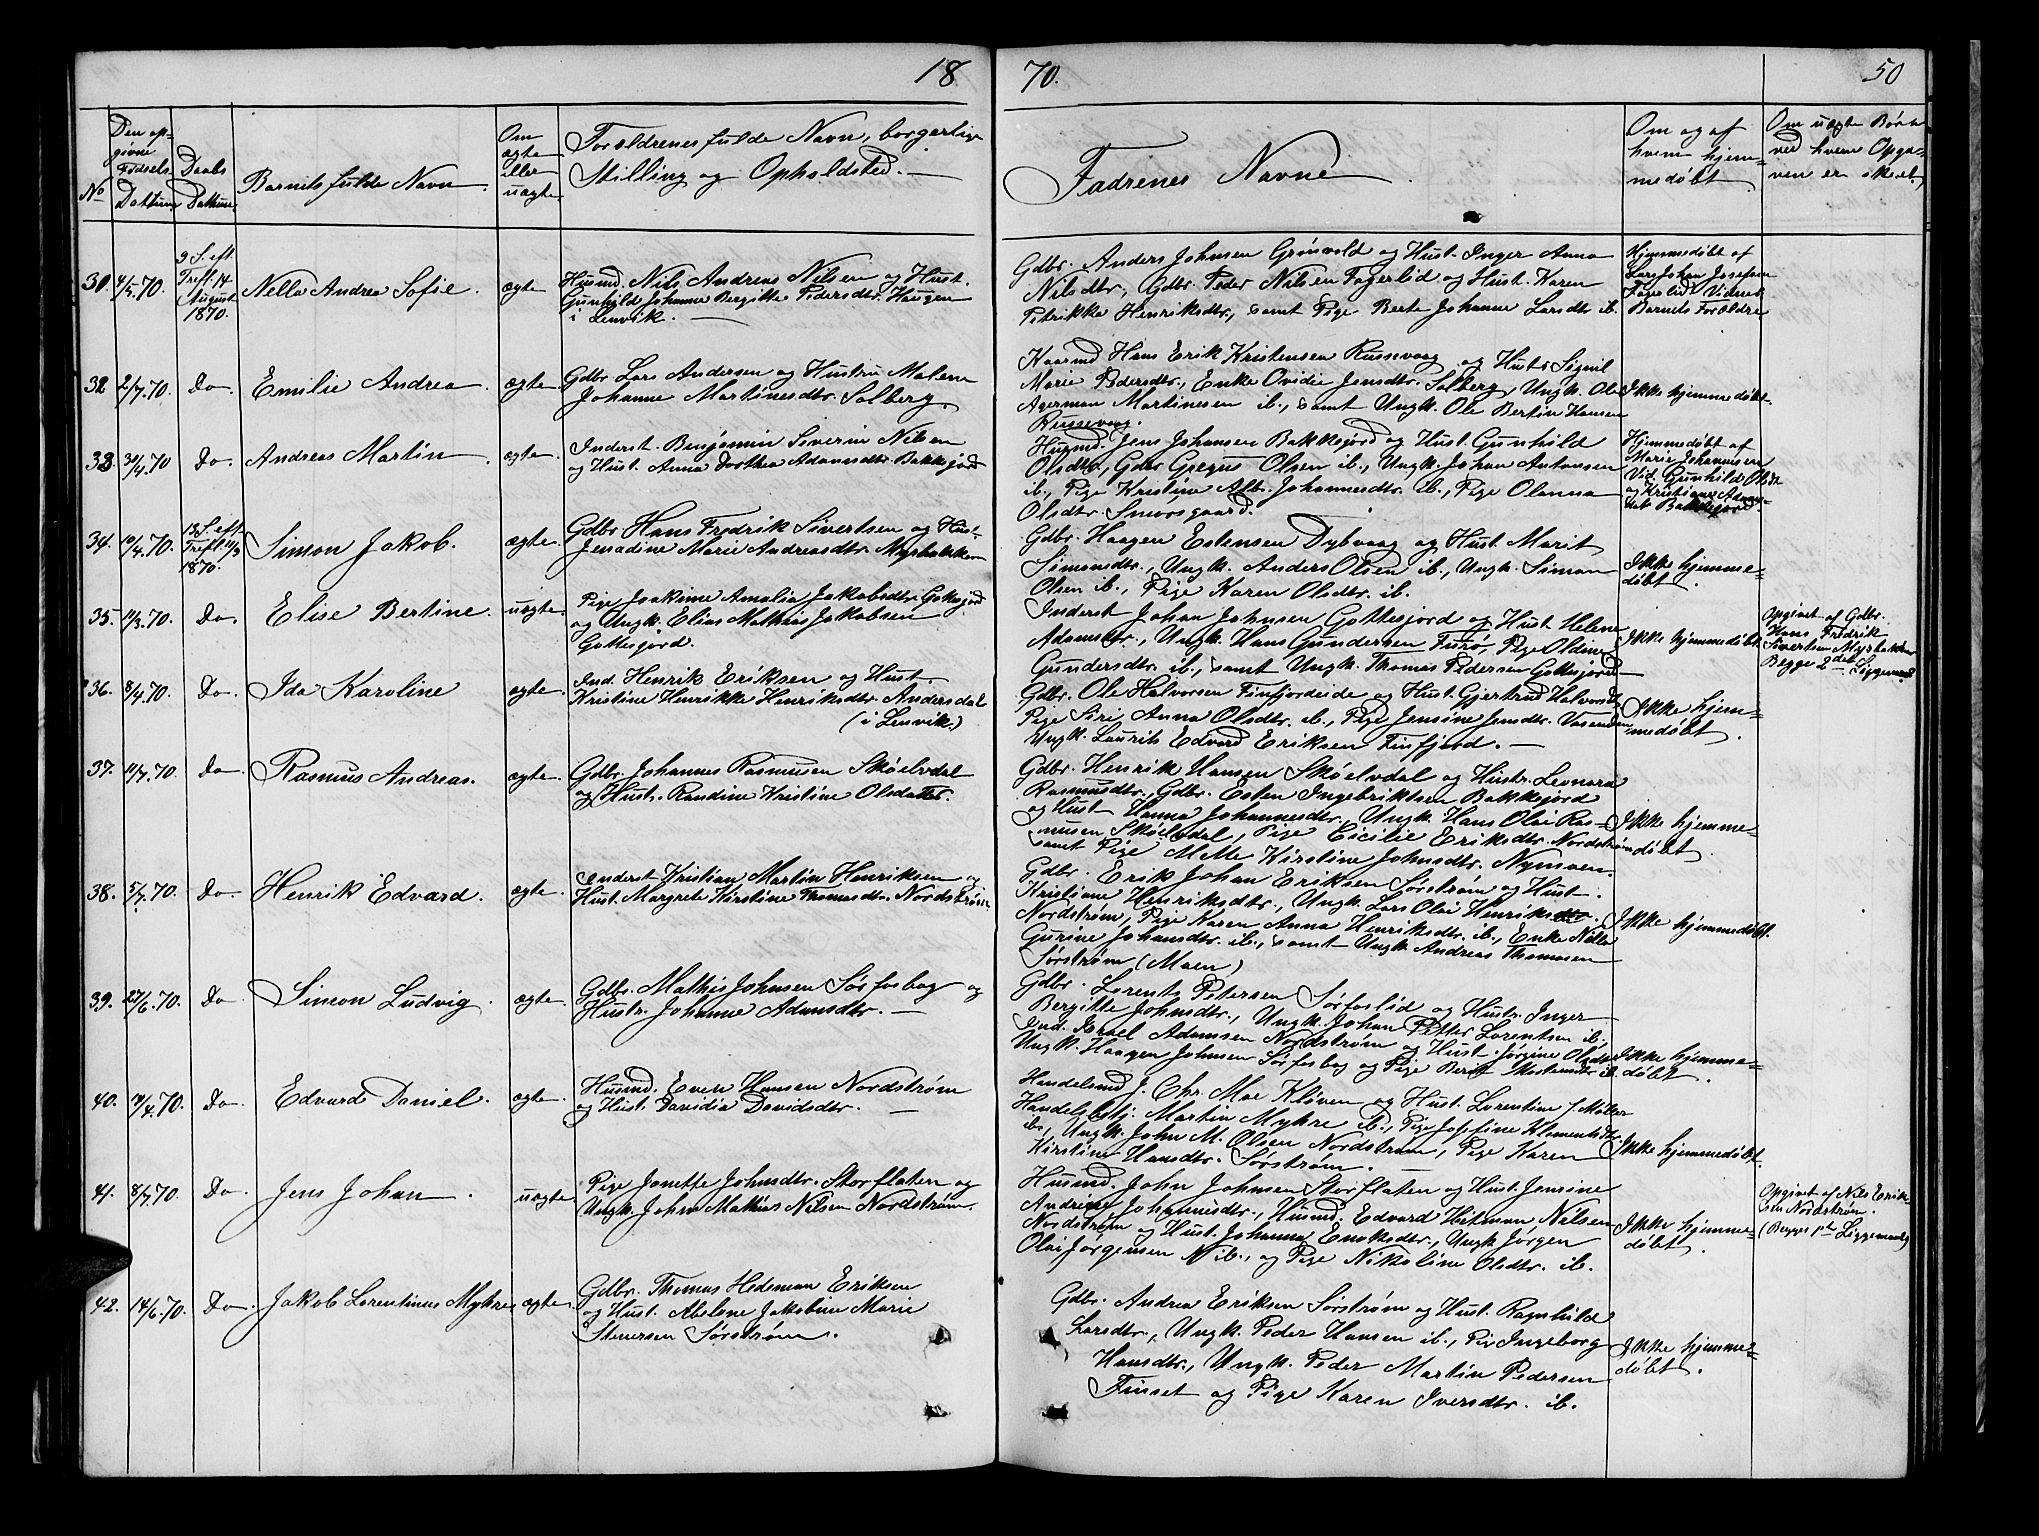 18
70.
50
No
Den op-
givne
Fødsels
Dattum.
Daabs
Dattum.
Barnets fulde Navn.
Om
ægte
eller
uægte.
Forældrenes fulde Navn, borgerlige
Stilling og Opholdsted.
Fadrenes Navne
Om og af
hvem hjem-
medøbt.
Om uægte Børn
ved hvem Opga-
ven er skeet.
31. 4/5.70.
9 S. eft.
Tref. 14
August
1870.
Nella Andrea Sofie.
ægte
Husmd. Nils Andreas Nilsen og Hust.
Gunhild Johanne Bergitte Pedersdtr. Haugen
i Lenvik.
Gdbr. Anders Johnsen Grønvold og Hust. Inger Anna
Nilsdtr., Gdbr. Peder Nilsen Fagerlid og Hust. Karen
Petrikke Henriksdtr., samt Pige Berte Johanne Larsdtr ib.
Hjemmedøbt af
Lars Johan Josefsen
Fagerlid. Vidner
Barnets Forældre
32 2/7.70. Do. Emilie Andrea. ægte.
Gdbr Lars Andersen og Hustru Malene
Johanne Martinesdtr. Solberg.
Kaarmd Hans Erik Kristensen Russevaag og Hustr Signil
Marie Pedersdtr., Enke Ovidie Jensdtr. Solberg, Ungk. Ole
Agerman Martinesen ib., samt Ungk. Ole Bertin Hansen
Russevaag.
Ikke hjemmedøbt.
33 30/4.70 Do. Andreas Martin. ægte.
Inderst. Benjamin Severin Nilsen
og Hust. Anna Dorthea Adamsdtr. Bakkejord
Husmd. Jens Johansen Bakkejord og Hust. Gunhild
Olsdtr, Gdbr Gregus Olsen ib., Ungk. Johan Antonsen
ib., Pige Kristine Alb. Johannesdtr. ib., Pige Olanna
Olsdtr. Smorsgaard.
Hjemmedøbt af
Marie Johannesen
Vid. Gunhild Olsdt
og Kristiane Adams-
dat Bakkejord
34. 10/4.70.
13 S. eft.
Tref. 11/9
1870.
Simon Jakob.
ægte.
Gdbr Hans Fredrik Sivertsen og Hust.
Jensadine Marie Andreasdtr. Myrbakken
Gdbr. Haagen Estensen Dybvaag og Hust. Marit
Simonsdtr., Ungk. Anders Olsen ib., Ungk. Simon
Olsen ib., Pige Karen Olsdtr. ib.
Ikke hjemme-
døbt.
35. 11/3.70. Do. Elise Bertine. uægte.
Pige Joakime Amalia Jakobsdtr. Gottesjord
og Ungk. Elias Mathias Jakobsen
Gottesjord.
Inderst Johan Johnsen Gottesjord og Hust. Helene
Adamsdtr., Ungk. Hans Gundersen Furø, Pige Oldine
Gundersdtr. ib., samt Ungk. Thomas Pedersen Gottesjord
Ikke hjemmedøbt.
Opgivet af Gdbr.
Hans Fredrik
Sivertsen Myrbakken
Begge 2det Liggemaal
36. 8/4.70. Do. Ida Karoline ægte.
Ind. Henrik Eriksen og Hust.
Kristine Henrikke Henriksdtr. Andersdal
(i Lenvik.)
Gdbr. Ole Halvorsen Finfjordeide og Hust. Gjertrud Halvorsdtr
Pige Siri Anna Olsdtr. ib., Pige Jensine Jensdtr. Vasenden
Ungk. Laurits Edvard Eriksen Finfjord.
Ikke hjem-
medøbt.
37. 11/7.70. Do Rasmus Andreas. ægte.
Gdbr. Johannes Rasmusen Skøelvdal
og Hustr. Randine Kristine Olsdatter.
Gdbr. Henrik Hansen Skøelvdal og Hustr. Leonora
Rasmusdtr., Gdbr. Esten Ingebriktsen Bakkejord
og Hust. Hanna Johannesdtr., Ungk. Hans Olai Ras-
musen Skøelvdal, Pige Cicilie Eriksdtr. Nordstrøm
samt Pige Mette Kirstine Johnsdtr. Nymoen.
Ikke hjemme-
døbt.
38. 5/7.70. Do. Henrik Edvard. ægte.
Inderst Kristian Martin Henriksen og
Hust. Margrete Kirstine Thomasdtr. Nordstrøm.
Gdbr. Erik Johan Eriksen Sørstrøm og Hust.
Kristiane Henriksdtr., Ungk. Lars Olai Henriksen.
Nordstrøm, Pige Karen Anna Henriksdtr. ib., Enke Nille
Gurine Johansdtr. ib., samt Ungk. Andreas Thomasen
Sørstrøm (Moen)
Ikke hjemmedøbt.
39. 27/6.70. Do Simon Ludvig. ægte.
Gdbr. Mathis Johnsen Sørfosbog og
Hustr. Johanne Adamsdtr.
Gdbr. Lorents Petersen Sørfoslid og Hustr. Inger
Bergitte Johnsdtr., Ungk. Johan Petter Lorentsen ib.,
Ind. Israel Adamsen Nordstrøm og Hust. Jørgine Olsdtr
Ungk. Haagen Johnsen Sørfosbog og Pige Berit Mortensdtr ib.
Ikke hjemme-
døbt.
40. 14/4.70. Do. Edvard Daniel. ægte.
Husmd. Even Hansen Nordstrøm
og Hust. Davidia Davidsdtr.
Handelsmd J. Chr. Moe Kløven og Hust. Lorentine f. Møller
Handelsbtj. Martin Myhre ib., Pige Josefine Klementsdtr.
ib., Ungk. John M. Olsen Nordstrøm, Pige Karen
Kirstine Hansdtr. Sørstrøm.
Ikke hjemmedøbt.
41. 8/7.70. Do. Jens Johan. uægte.
Pige Jonette Johnsdtr. Storflaten og
Ungk. John Mathias Nilsen Nordstrøm.
Husmd. John Johnsen Storflaten og Hust. Jensine
Andrine Johannisdtr., Husmd. Edvard Hetman Nilsen
Nordstrøm og Hust. Johanna Enoksdtr., Ungk Jørgen
Olai Jørgensen N ib., og Pige Nikoline Olsdtr. ib.
Ikke hjemme-
døbt.
Opgivet af Nils Erik-
sen Nordstrøm.
(Begges 1ste Liggemaal)
42. 14/6.70. Do. Jakob Lorentinus Myhre ægte.
Gdbr. Thomas Hedeman Eriksen
og Hust. Abelene Jakobine Marie
Stenersen Sørstrøm.
Gdbr. Andrea Eriksen Sørstrøm og Hust. Ragnhild
Larsdtr., Ungk. Peder Hansen ib., Pige Ingeborg
Hansdtr., Ungk. Peder Martin Pedersen
Finset og Pige Karen Iversdtr. ib.
Ikke hjemme-
døbt.